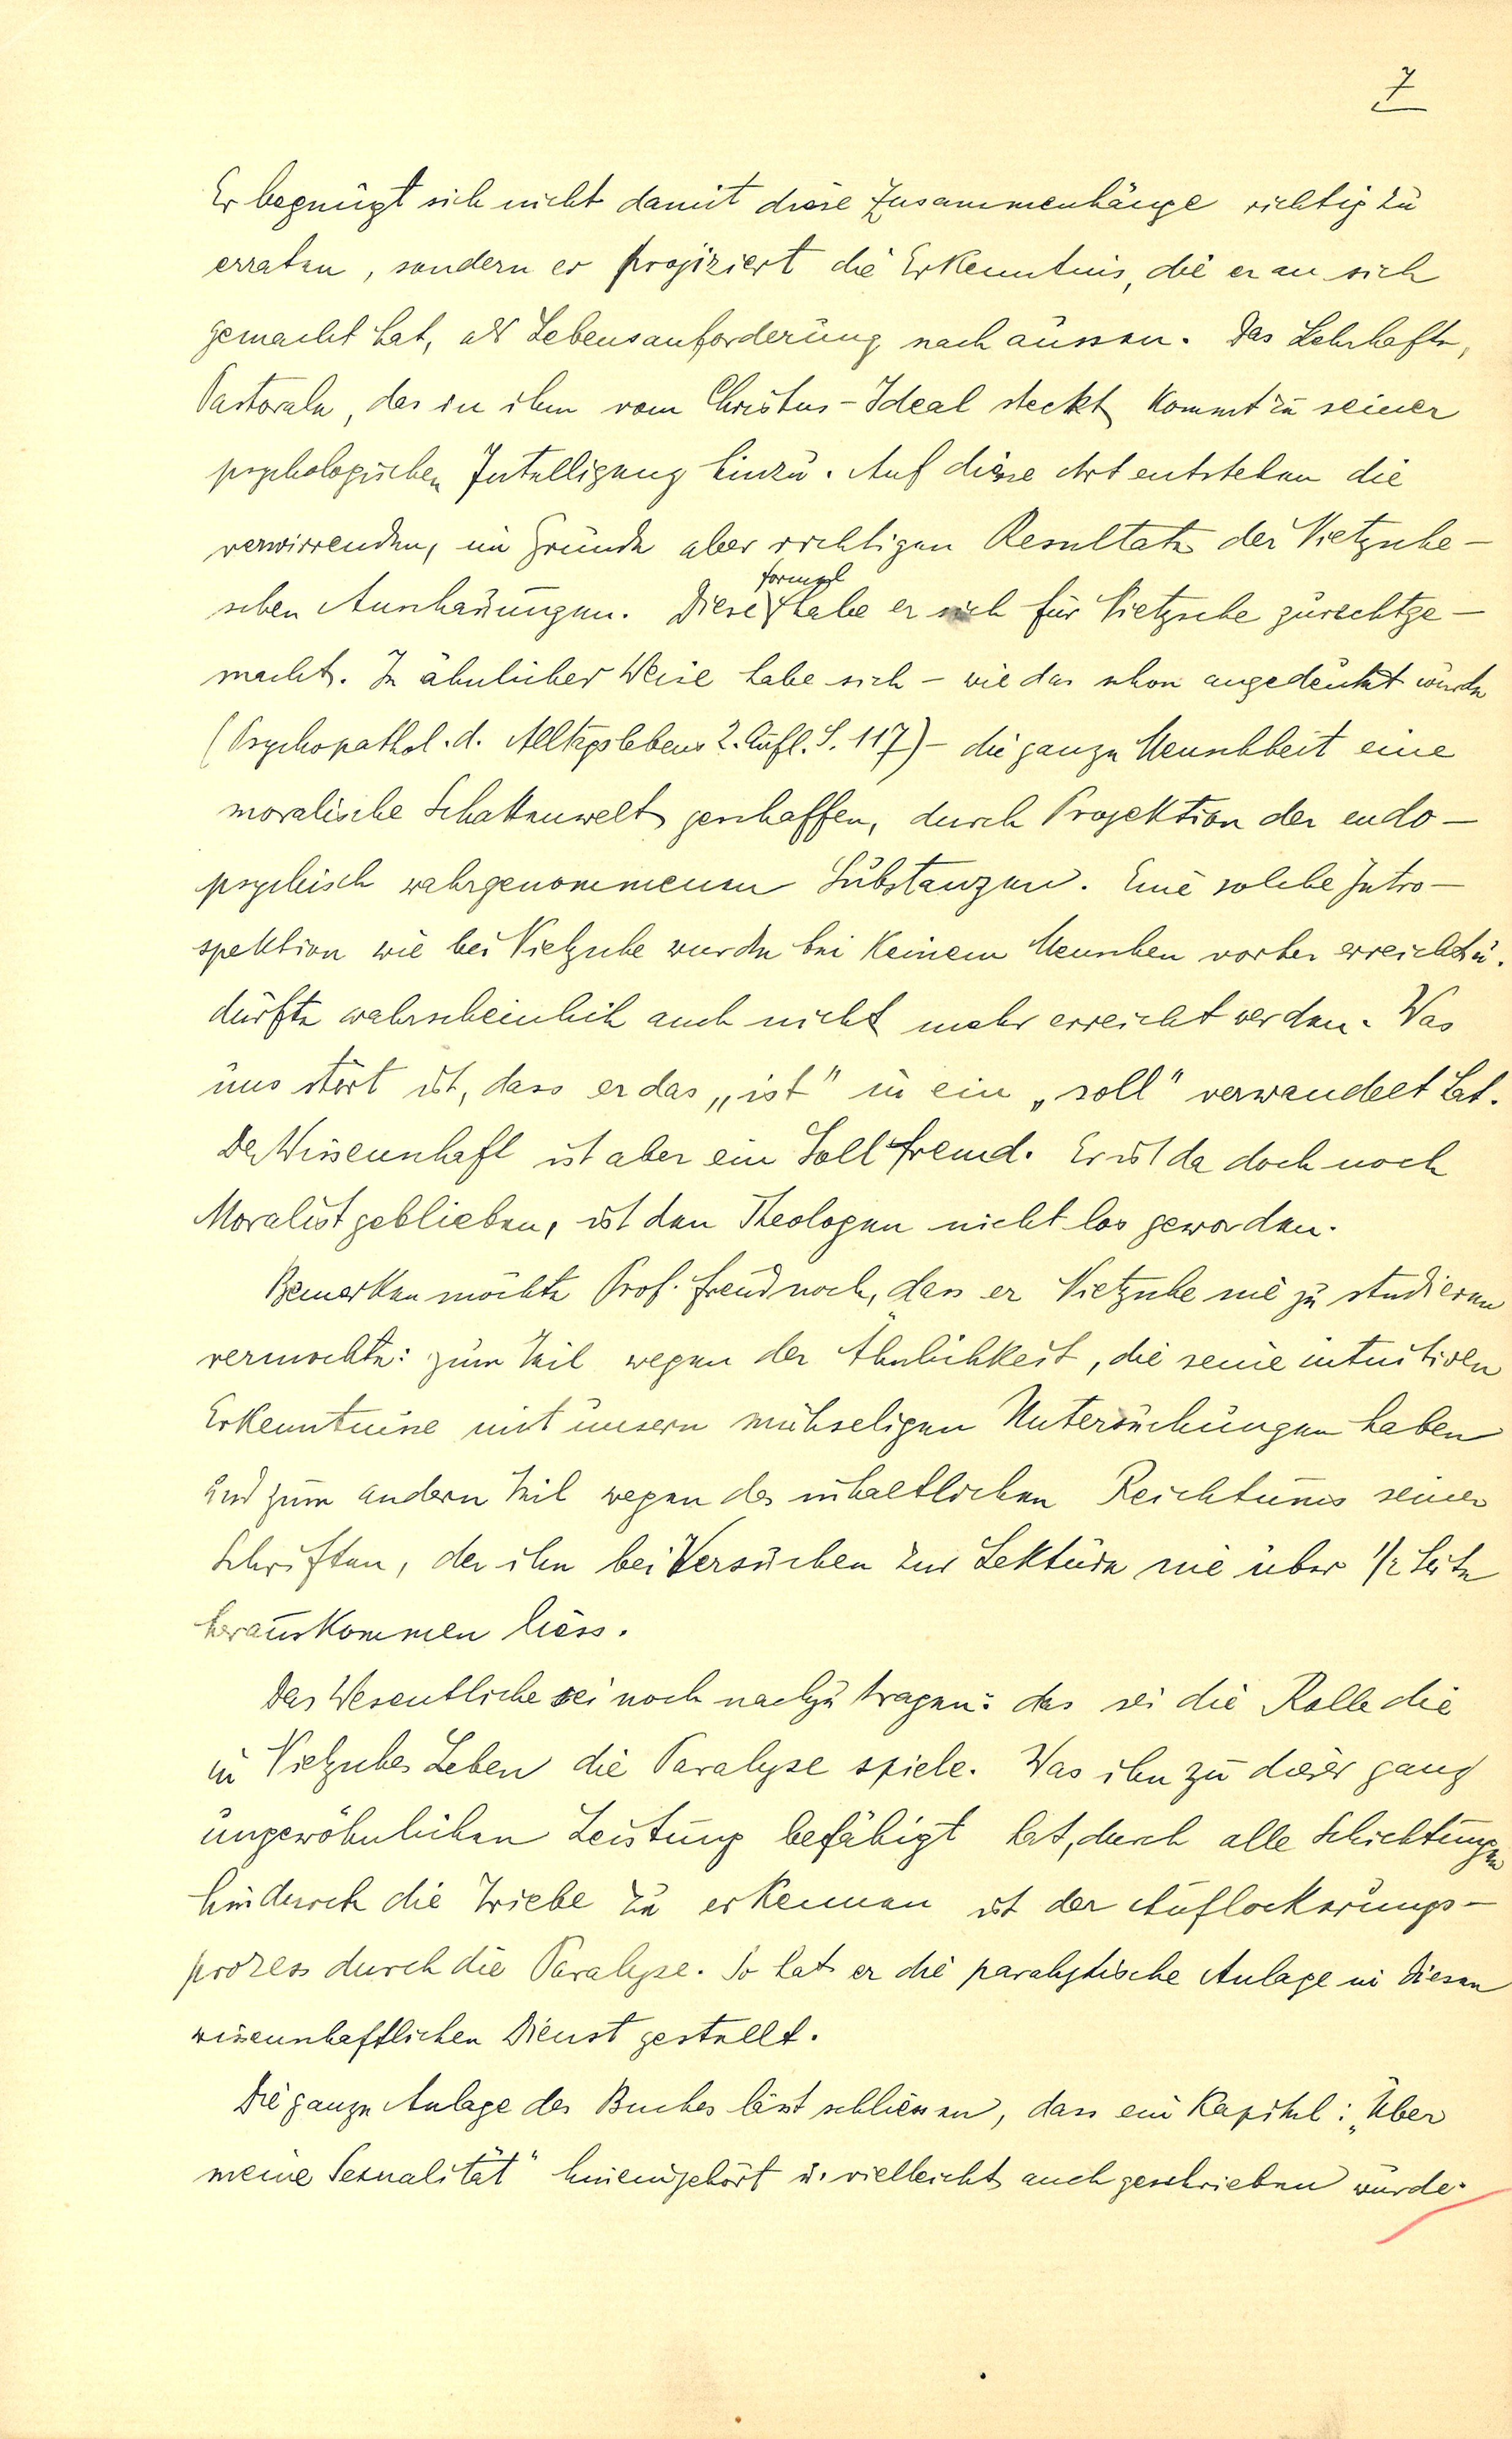 7
Er begnügt sich nicht damit diese Zusammenhänge richtig zu
erraten, sondern er projiziert die Erkenntnis, die er an sich
gemacht hat, als Lebensanforderung nach aussen. Das Lehrhafte,
Pastorale, das in ihm vom Christus-Ideal steckt, kommt zu seiner
psychologischen Intelligenz hinzu. Auf diese Art entstehen die
verwirrenden, im Grunde aber richtigen Resultate der Nietzsche-
formel
schen Anschauungen. Diese habe er sich für Nietzsche zurechtge-
macht. In ähnlicher Weise habe sich - wie das schon angedeutet wurde
(Psychopathol. d. Alltagslebens 2. Aufl. S. 117) - die ganze Menschheit eine
moralische Schattenwelt geschaffen, durch Projektion der endo-
psychisch wahrgenommenen Substanzen. Eine solche Intro-
spektion wie bei Nietzsche wurde bei keinem Menschen vorher erreicht u.
dürfte wahrscheinlich auch nicht mehr erreicht werden. Was
uns stört ist, dass er das „ist" in ein „soll" verwandelt hat.
Der Wissenschaft ist aber ein Soll fremd. Er ist da doch noch
Moralist geblieben, ist den Theologen nicht los geworden.
Bemerken möchte Prof. Freud noch, dass er Nietzsche nie zu studieren
vermochte: zum Teil wegen der Ähnlichkeit, die seine intuitiven
Erkenntnisse mit unsern mühseligen Untersuchungen haben
und zum andern Teil wegen des inhaltlichen Reichtums seiner
Schriften, der ihn bei Versuchen zur Lektüre nie über 1/2 Seite
herauskommen liess.
Das Wesentliche sei noch nachzutragen: das sei die Rolle die
in Nietzsches Leben die Paralyse spiele. Was ihn zu dieser ganz
ungewöhnlichen Leistung befähigt hat, durch alle Schichtungen
hindurch die Triebe zu erkennen ist der Auflockerungs-
prozess durch die Paralyse. So hat er die paralytische Anlage in diesen
wissenschaftlichen Dienst gestellt.
Die ganze Anlage des Buches lässt schliessen, dass ein Kapitel: „Über
meine Sexualität" hineingehört u. vielleicht auch geschrieben wurde.